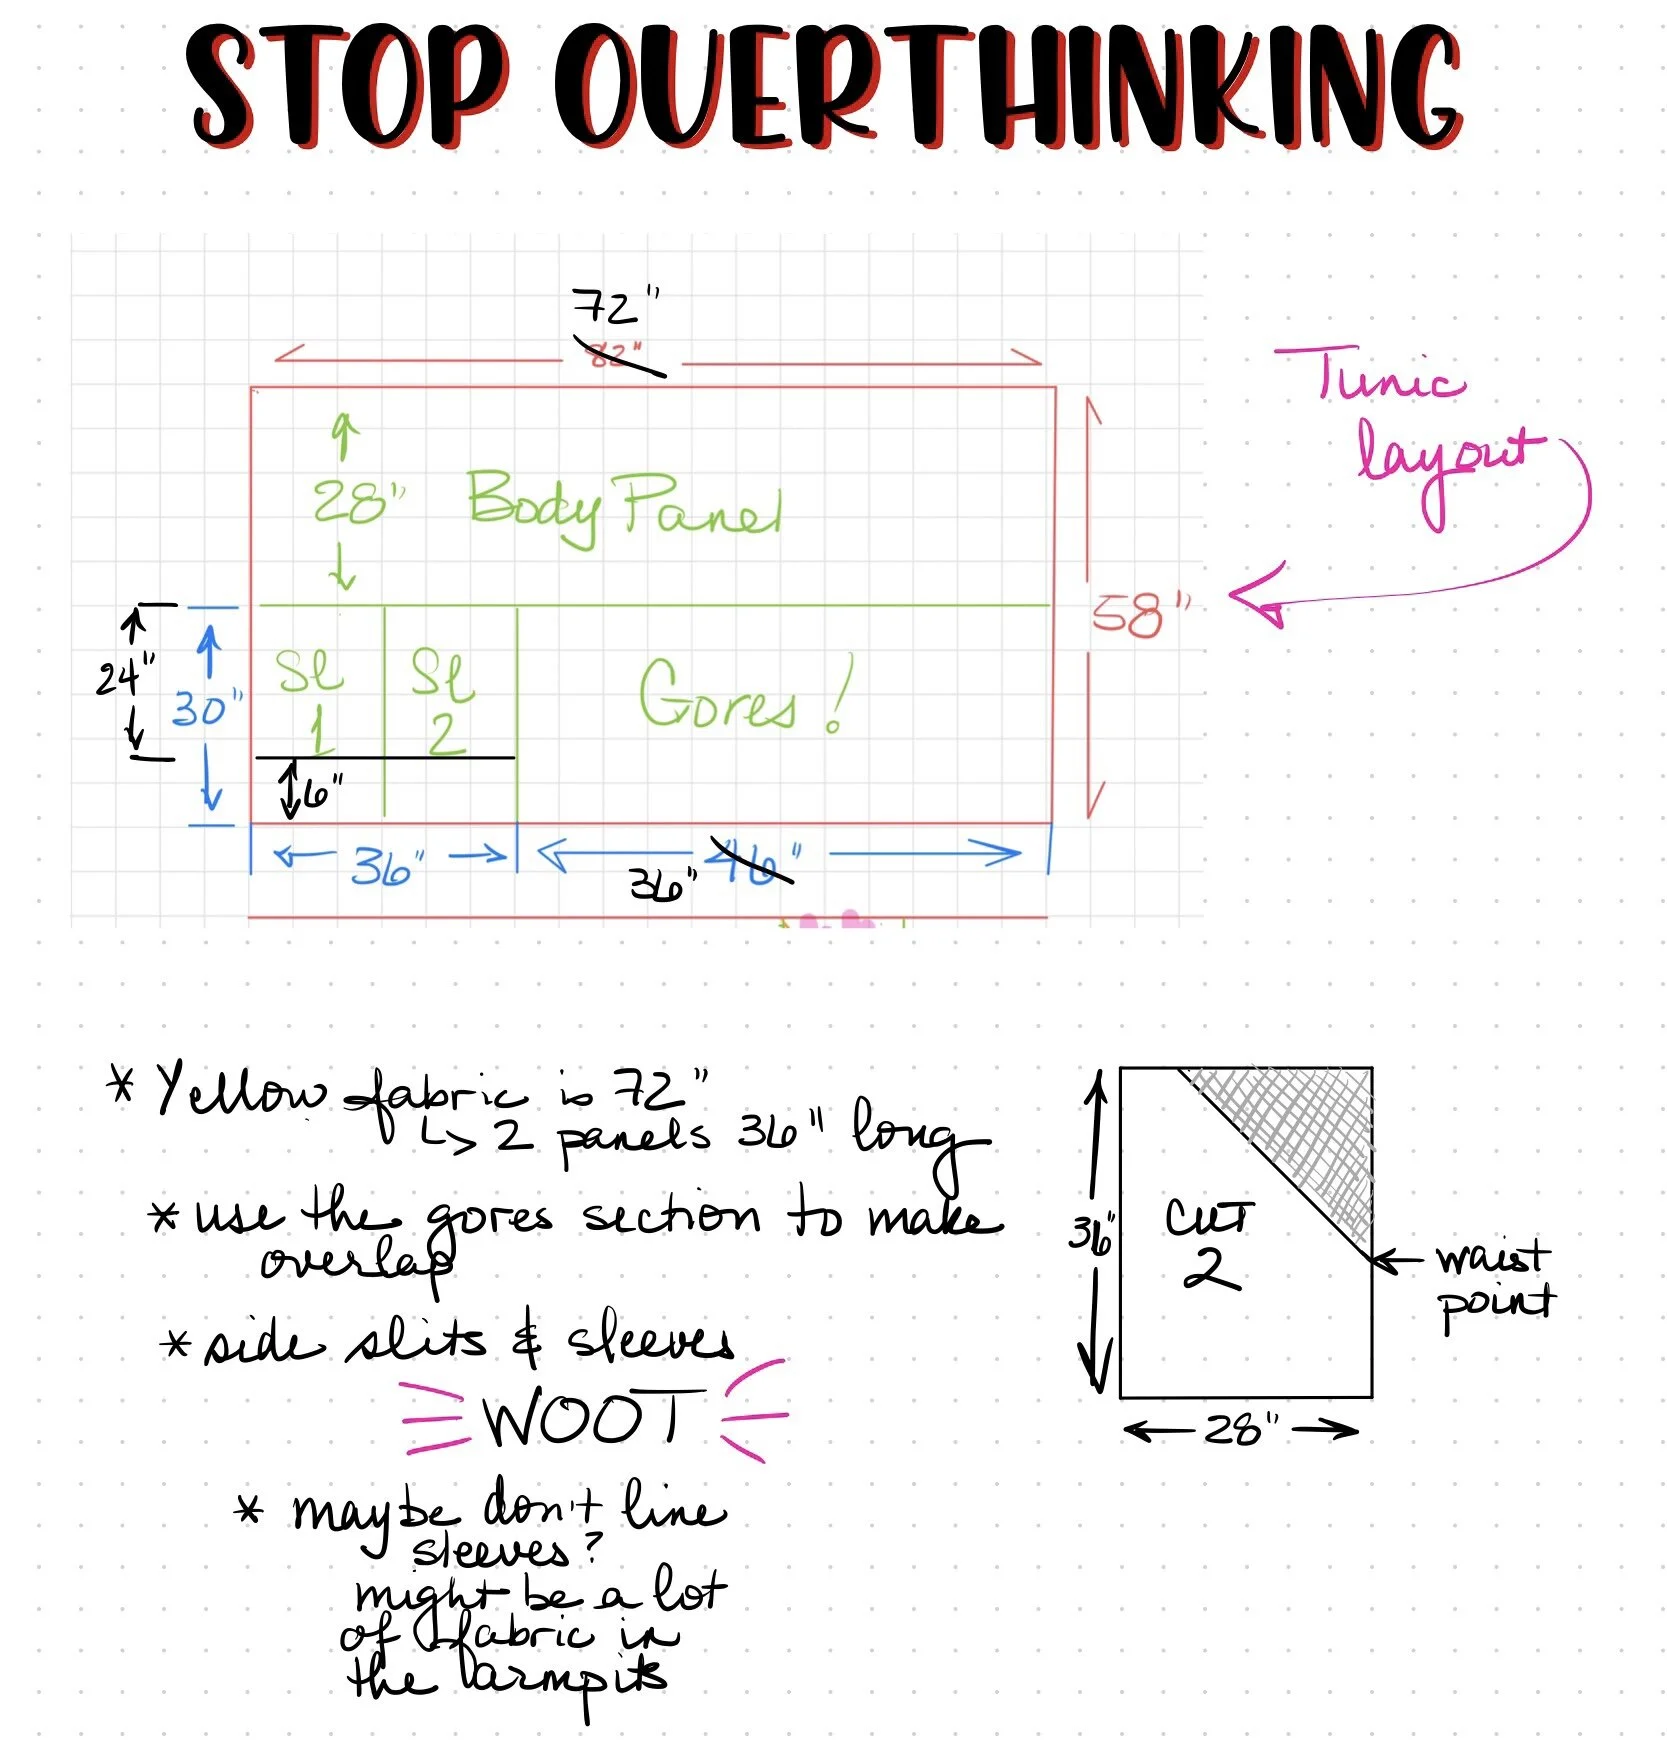 STOP OVERTHINKING
72"
82"
Tunic
layout
28" Body Panel
58"
24"
30"
Sl
1
Sl
2
Gores!
6"
36"
46"
36"
* Yellow fabric is 72"
↳ 2 panels 36" long
* use the gores section to make
overlap
* side slits & sleeves
WOOT
* maybe don't line
sleeves?
might be a lot
of fabric in
the armpits
36"
CUT
2
waist
point
28"